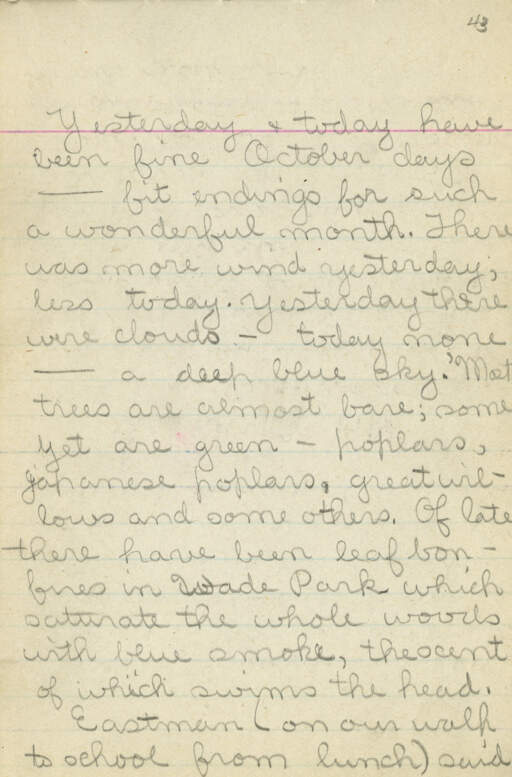 43
Yesterday & today have
been fine October days
— fit endings for such
a wonderful month. There
was more wind yesterday,
less today. Yesterday there
were clouds – today none
— a deep blue sky. Most
trees are almost bare; some
yet are green – poplars,
japanese poplars, great wil-
lows and some others. Of late
there have been leaf bon-
fires in Wade Park which
saturate the whole woods
with blue smoke, the scent
of which swims the head.
Eastman (on our walk
to school from lunch) said